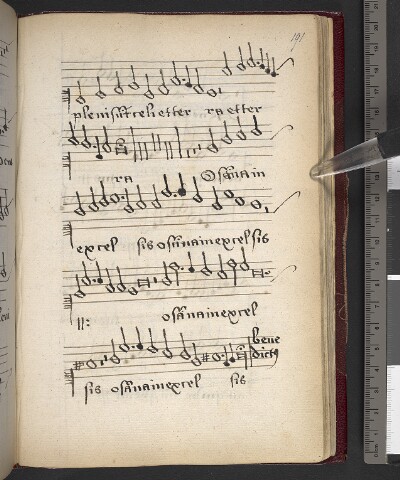 191
pleni sūt celi etter ra etter
ra Osāna in
excel sis osāna in excel sis
osāna in excel
bene
sis osāna in excel sis dict9